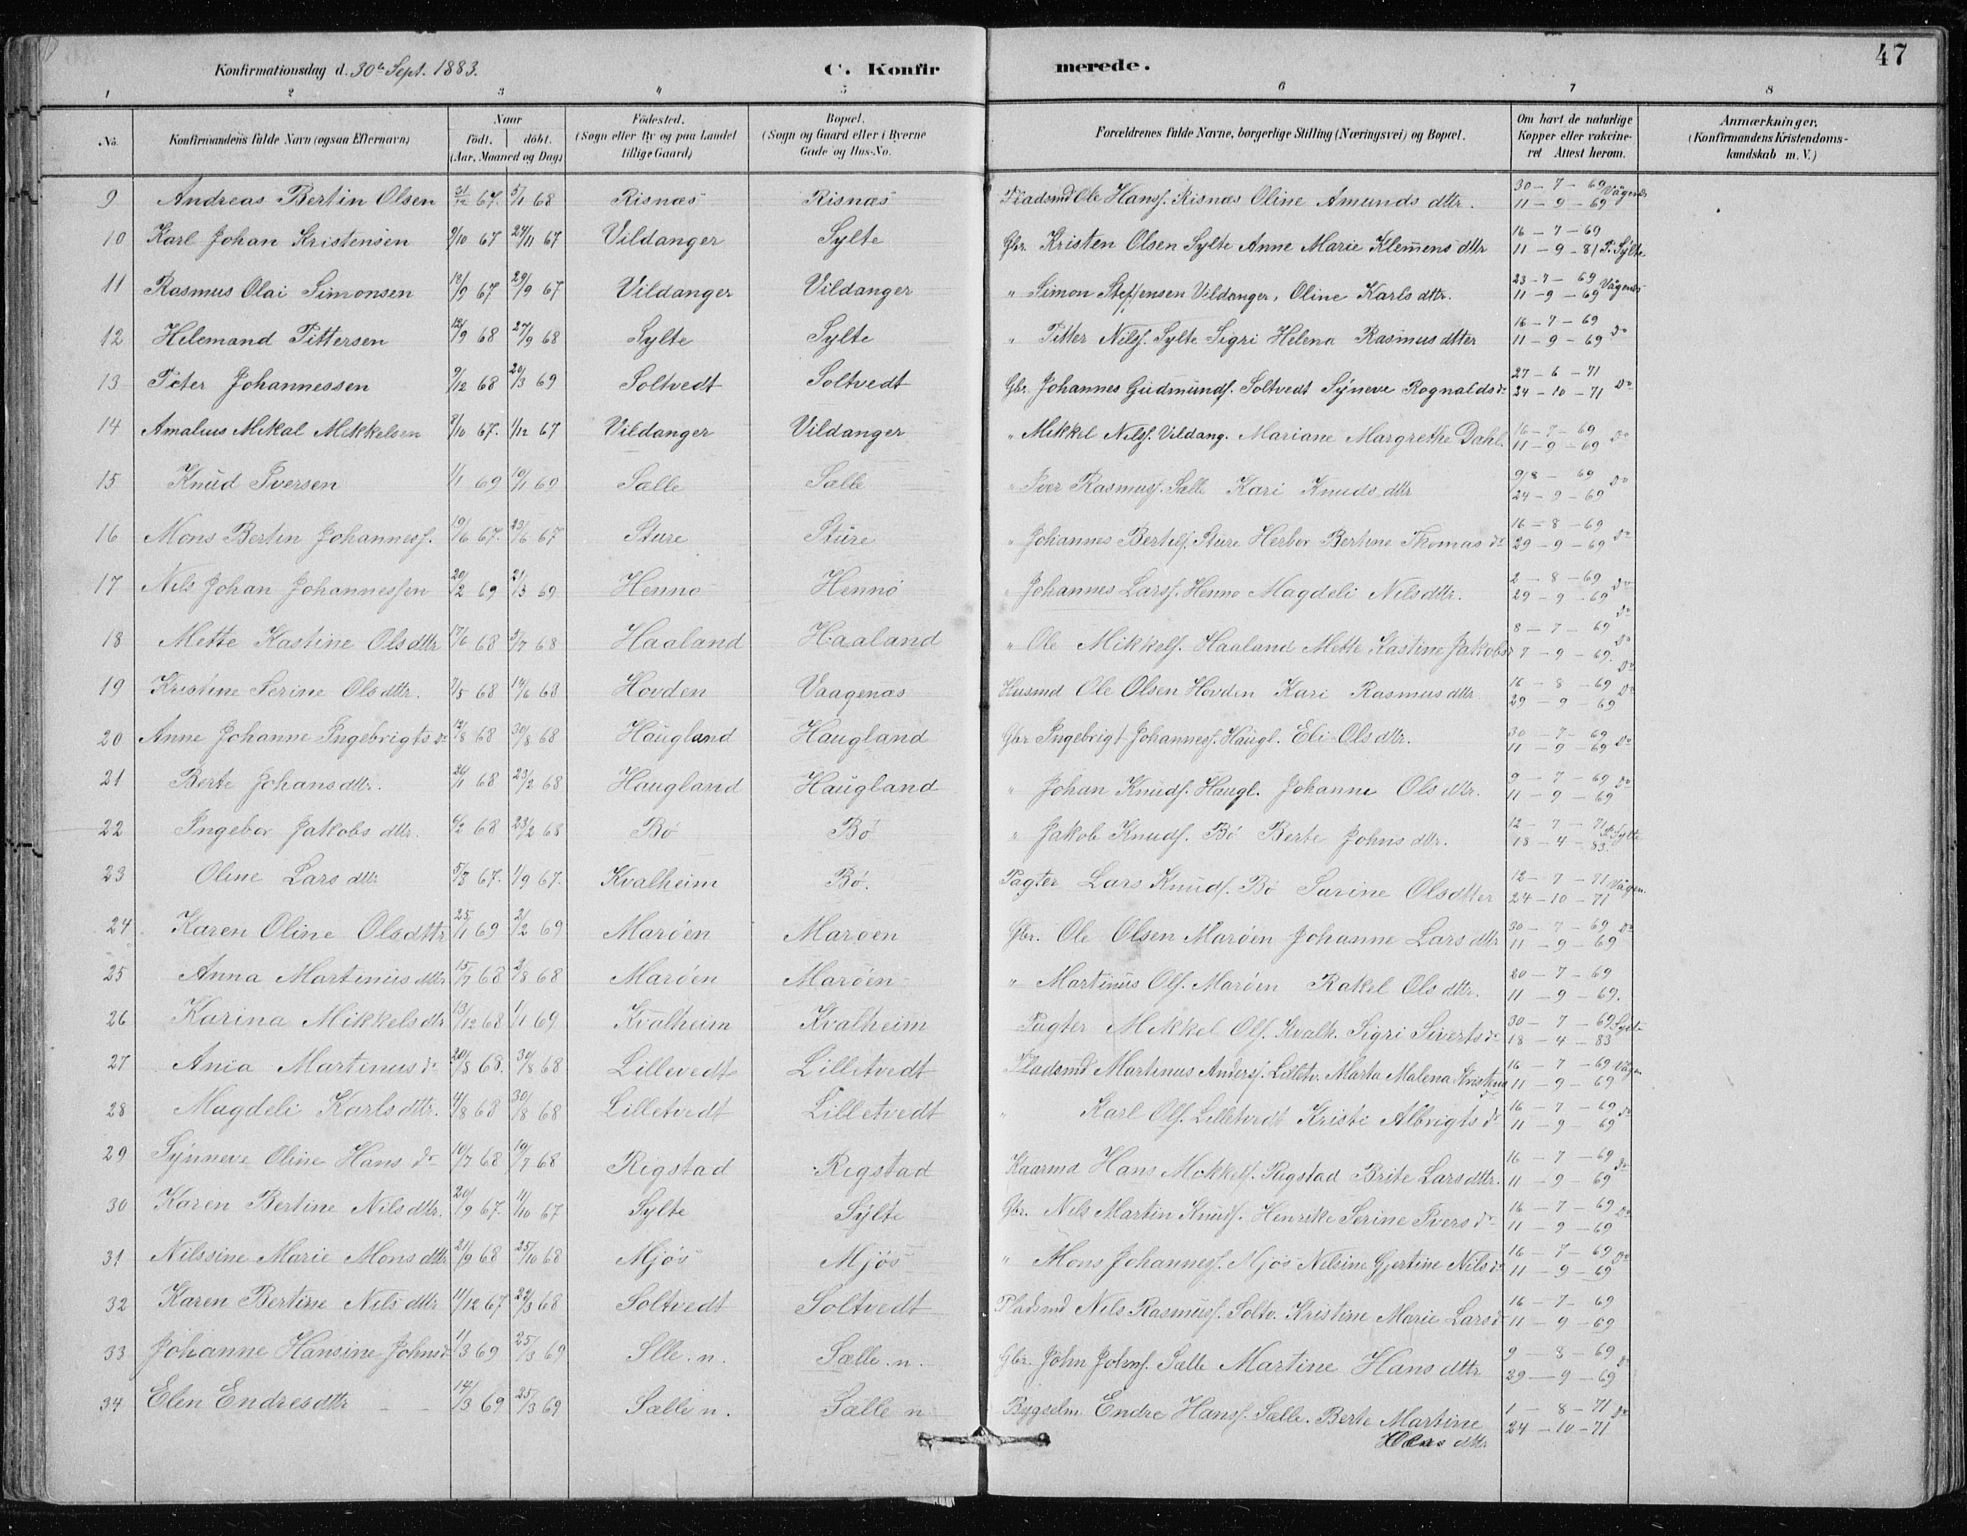 47
Konfirmationsdag d. 30te Sept. 1883.
C. Konfirmerede.
1 2 3 4 5 6 7 8
No. Konfirmandens fulde Navn (ogsaa Efternavn) Naar födt. döbt. (Aar, Maaned og Dag) Födested. (Sogn eller By og paa Landet tillige Gaard) Bopæl. (Sogn og Gaard eller i Byerne Gade og Hus-No. Forældrenes fulde Navne, borgerlige Stilling (Næringsvei) og Bopæl. Om havt de naturlige Kopper eller vakcineret Attest herom. Anmærkninger. (Konfirmandens Kristendomskundskab m. V.)
9 Andreas Bertin Olsen 31/12 67. 5/1 68 Risnæs Risnæs Pladsmd Ole Hansf. Risnæs Oline Amunds dttr. 30-7-69 11-9-69 Vågenæs
10 Karl Johan Kristensen 9/10 67 24/11 67 Vildanger Sylte Gbr. Kristen Olsen Sylte Anne Marie Klemens dttr 16-7-69 11-9-81 P. Sylte
11 Rasmus Olai Simonsen 13/9 67 29/9 67 Vildanger Vildanger " Simon Steffensen Vildanger, Oline Karls dttr. 23-7-69 11-9-69 Vågenæs
12 Hilemand Pittersen 12/9 68 27/9 68 Sylte Sylte " Pitter Nilsf. Sylte Sigri Helena Rasmus dtter 16-7-69 11-9-69 Do
13 Peter Johannessen 9/12 68 20/3 69 Soltvedt Soltvedt Gbr. Johannes Gudmundf. Soltvedt Synneve Rognalds dr 27-6-71 24-10-71 Do
14 Amalius Mikal Mikkelsen 8/10 67. 1/12 67 Vildanger Vildanger " Mikkel Nilsf. Vildang. Mariane Margrethe Dahl. 16-7-69 11-9-69 Do
15 Knud Iversen 1/1 69 10/1 69 Sælle Sælle " Iver Rasmusf. Sælle Kari Knuds dttr 9/8-69 24-9-69 Do
16 Mons Bertin Johannesf. 10/6 67. 23/6 67 Sture Sture " Johannes Bertelsf. Sture Herbor Bertine Thomas dr 16-8-69 29-9-69 Do
17 Nils Johan Johannessen 20/2 69 21/3 69 Henno Hennö " Johannes Larsf. Henno Magdeli Nils dttr. 2-8-69 29-9-69 Do
18 Mette Kastine Ols dttr 17/6 68 5/7 68 Haaland Haaland " Ole Mikkelsf. Haaland Mette Kastine Jakobs 8-7-69 7-9-69. Do
19 Kristine Serine Ols dttr. 7/5 68 14/6 68 Hovden Vaagenæs Husmd Ole Olsen Hovden Kari Rasmus dttr 16-8-69 29-9-69 Do
20 Anne Johanne Ingebrigts dr 12/8 68 30/8 68 Haugland Haugland Gbr Ingebrigt Johannesf. Haugl. Eli Ols dttr. 30-7-69 11-9-69 Do
21 Berte Johans dttr. 26/1 68 23/2 68 Haugland Haugland " Johan Knudf. Haugl. Johanne Ols dttr. 9-7-69 11-9-69 Do
22 Ingebor Jakobs dttr. 6/2 68 23/2 68 Bö Bö " Jakob Knudf. Bö Berte Johns dtr. 12-7-71 18-4-83. P. Sylte
23 Oline Lars dttr 5/8 67. 1/9 67. Kvalheim Bö. Pagter Lars Knudf. Bö Serine Ols dtter 12-7-71 24-10-71 Vågen.
24 Karen Oline Ols dttr 25/1 69 21/2 69 Maröen Maroen Gbr. Ole Olsen Maröen Johanne Lars dttr 30-7-69 11-9-69 Do
25 Anna Martinus dttr 15/7 68 2/8 68 Maröen Maröen " Martinus Olf. Maröen Rakel Ols dttr. 20-7-69 11-9-69.
26 Karina Mikkels dtr 13/12 68 1/1 69 Kvalheim Kvalheim Pagter Mikkel Olf. Kvalh. Sigri Siverts dr 30-7-69 18-4-83 Sylte
27 Ania Martinus dr 20/8 68. 30/8 68 Lillevedt Lilletvedt Pladsmd Martinus Andersf. Lilletv. Marta Malena Kristens dr 16-7-69 11-9-69 Vågen
28 Magdeli Karls dttr. 4/8 68 30/8 68 Lilletvedt Lilletvedt " Karl Olf. Lilletvedt Kristi Albrigts dr 16-7-69 11-9-69 Do
29 Synneve Oline Hans dr 10/7 68 19/7 68 Rigstad Rigstad Kaarmd Hans Mikkelf. Rigstad Brite Lars dttr. 16-7-69 11-9-69 Do
30 Karen Bertine Nils dttr. 20/9 67. 11/10 67 Sylte Sylte Gbr. Nils Martin Knudf. Henrike Serine Ivers dr 16-7-69 11-9-69 Do
31 Nilssine Marie Mons dttr 21/9 68 25/10 68 Mjös Mjös " Mons Johannesf. Mjös Nilsine Gjertine Nils dr 16-7-69 11-9-69 Do
32 Karen Bertine Nils dttr 11/12 67 22/3 68 Soltvedt Soltvedt Pladsmd Nils Rasmusf. Soltv. Kristine Marie Lars dr 16-7-69 11-9-69
33 Johanne Hansine Johns dr 1/3 69 25/3 69 Slle. n. Sælle. n. Gbr. John Johnf. Sælle Martine Hans dttr 9-8-69 29-9-69 Do
34 Elen Endres dttr 14/3 69 25/3 69 Sælle n. Sælle n Bygselm Endre Hansf. Sælle. Berte Martine 1-8-71 24-10-71 Do
dttr